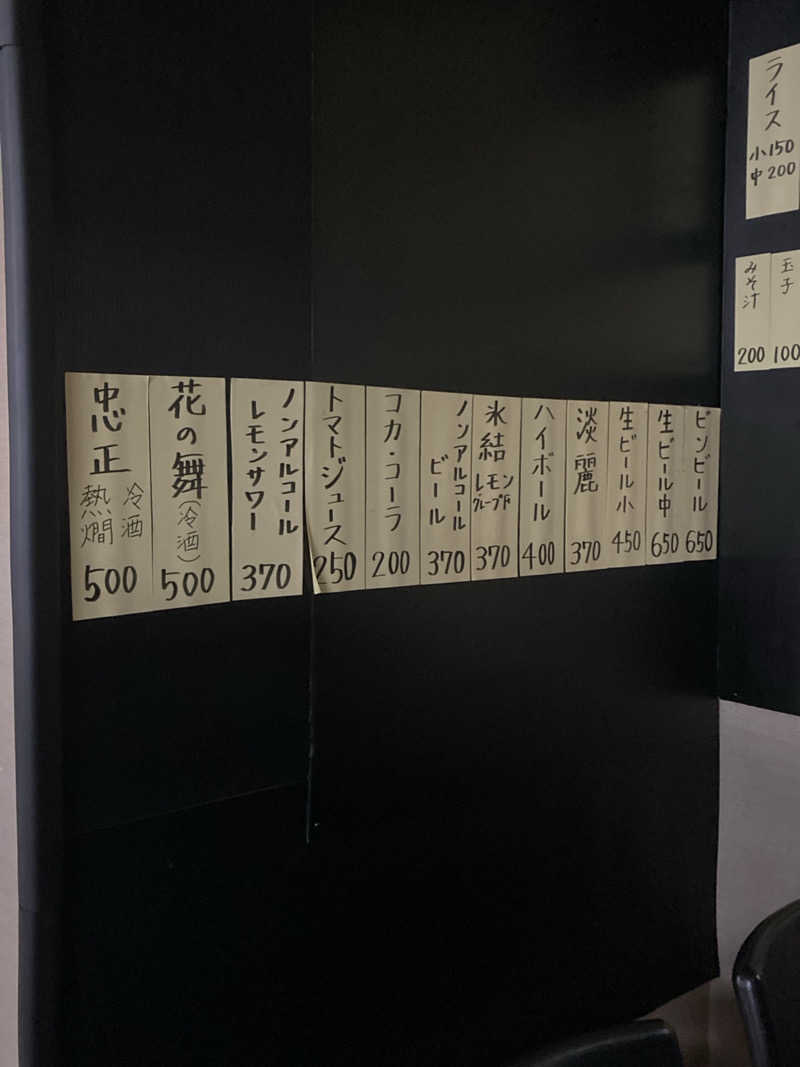 ライス
小150
中200
玉子
100
みそ汁
200
ビンビール
650
生ビール中
650
生ビール小
450
淡麗
370
ハイボール
400
氷結
レモン
グレープF
370
ノンアルコール
ビール
370
コカ・コーラ
200
トマトジュース
250
ノンアルコール
レモンサワー
370
花の舞(冷酒)
500
忠正
冷酒
熱燗
500